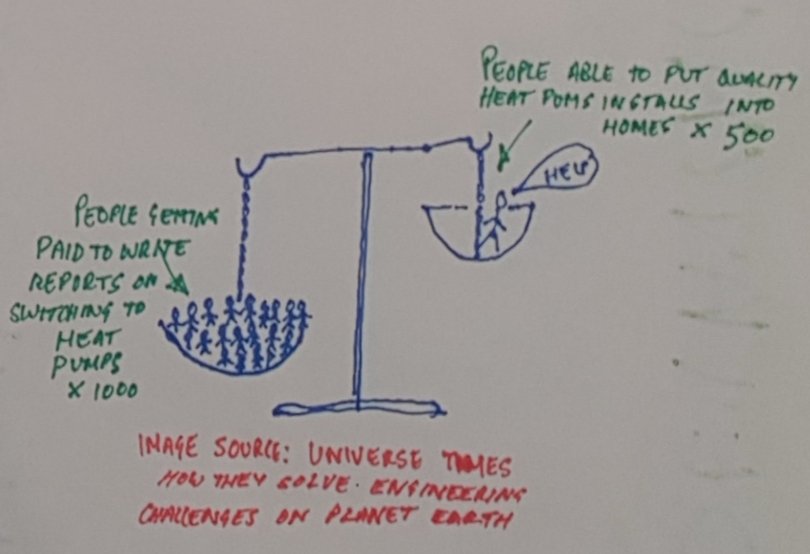 PEOPLE ABLE TO PUT QUALITY
HEAT POMS INSTALLS INTO
HOMES X 500
HELP
PEOPLE GETTING
PAID TO WRITE
REPORTS ON
SWITCHING TO
HEAT
PUMPS
X 1000
IMAGE SOURCE: UNIVERSE TIMES
HOW THEY SOLVE ENGINEERING
CHALLENGES ON PLANET EARTH